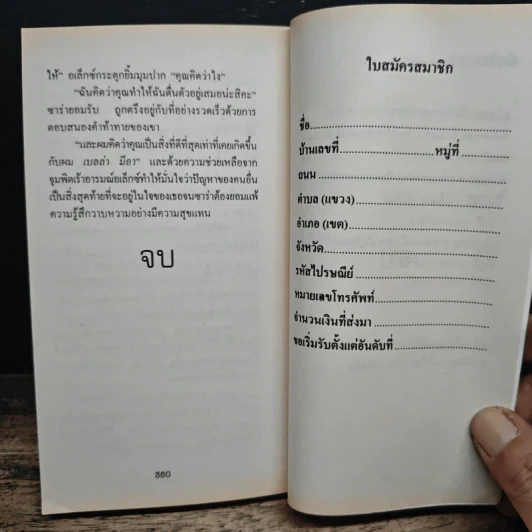 ให้" อเล็กซ์กระตุกยิ้มมุมปาก "คุณคิดว่าไง"
"ฉันคิดว่าคุณทำให้ฉันตื่นตัวอยู่เสมอน่ะสิคะ"
ซาร่ายอมรับ ถูกตรึงอยู่กับที่อย่างรวดเร็วด้วยการ
ตอบสนองคำท้าทายของเขา
"และผมคิดว่าคุณเป็นสิ่งที่ดีที่สุดเท่าที่เคยเกิดขึ้น
กับผม เบลล่า มีอา" และด้วยความช่วยเหลือจาก
จุมพิตเร้าอารมณ์อเล็กซ์ทำให้มั่นใจว่าปัญหาของคนอื่น
เป็นสิ่งสุดท้ายที่จะอยู่ในใจของเธอจนซาร่าต้องยอมแพ้
ความรู้สึกวาบหวามอย่างมีความสุขแทน
จบ
380
ใบสมัครสมาชิก
ชื่อ
บ้านเลขที่ หมู่ที่
ถนน
ตำบล (แขวง)
อำเภอ (เขต)
จังหวัด
รหัสไปรษณีย์
หมายเลขโทรศัพท์
จำนวนเงินที่ส่งมา
ขอเริ่มรับตั้งแต่อันดับที่